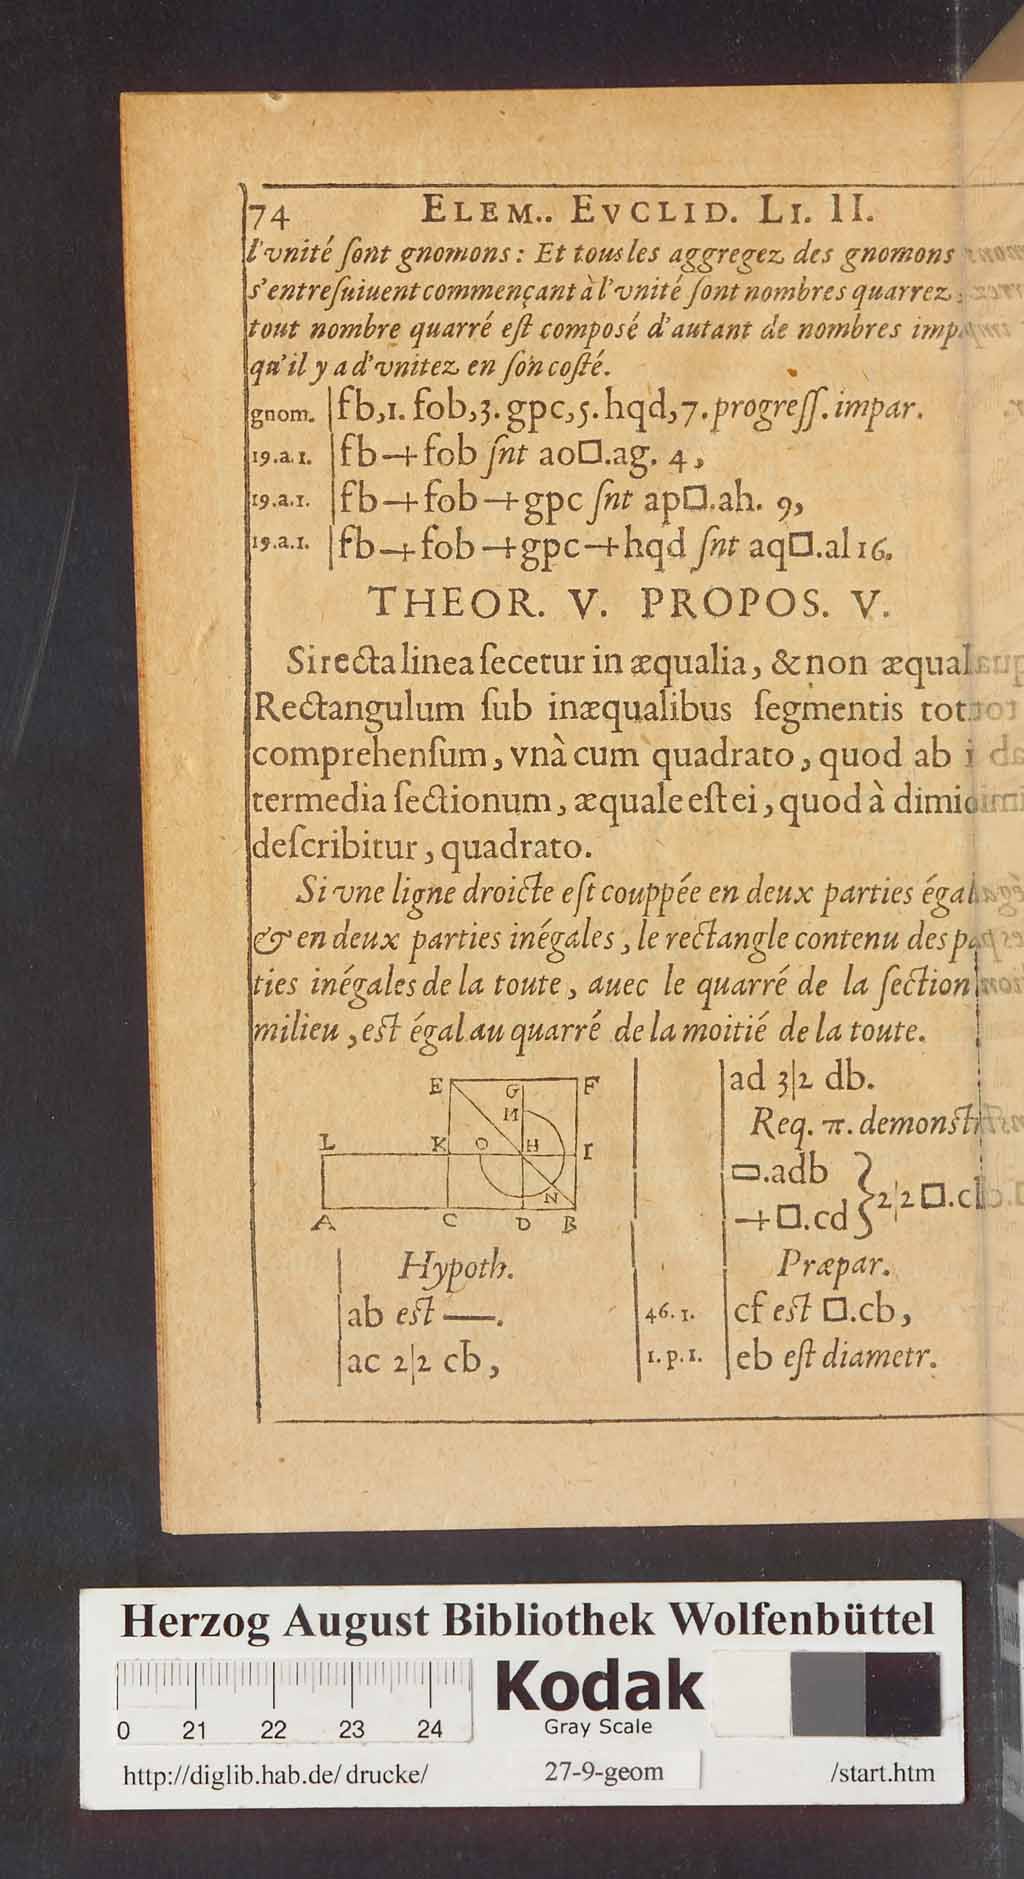 74 ELEM.. EVCLID. LI. II.
l'vnité ſont gnomons : Et tous les aggregez des gnomons
s'entreſuiuent commençant à l'vnité ſont nombres quarrez,
tout nombre quarré eſt composé d'autant de nombres imp
qu'il y a d'vnitez en ſon coſté.
gnom. |fb,1. fob,3. gpc,5. hqd,7. progreſſ. impar.
19.a.1. |fb-+fob ſnt ao□.ag. 4,
19.a.1. |fb-+fob-+gpc ſnt ap□.ah. 9,
19.a.1. |fb-+fob-+gpc-+hqd ſnt aq□.al 16.
THEOR. V. PROPOS. V.
Si recta linea ſecetur in æqualia, & non æqual
Rectangulum ſub inæqualibus ſegmentis tot
comprehenſum, vnà cum quadrato, quod ab i
termedia ſectionum, æquale eſt ei, quod à dimid
deſcribitur, quadrato.
Si vne ligne droicte eſt couppée en deux parties égal
& en deux parties inégales, le rectangle contenu des pa
ties inégales de la toute, auec le quarré de la ſection
milieu, eſt égal au quarré de la moitié de la toute.
E G F
M
L K O H I
N
A C D B
Hypoth.
|ab eſt —.
|ac 2|2 cb,
|ad 3|2 db.
Req. π. demonſt
▭.adb
-+□.cd } 2|2 □.cb
Præpar.
46. 1. |cf eſt □.cb,
1. p. 1. |eb eſt diametr.
Herzog August Bibliothek Wolfenbüttel
Kodak
Gray Scale
0 21 22 23 24
http://diglib.hab.de/drucke/ 27-9-geom /start.htm